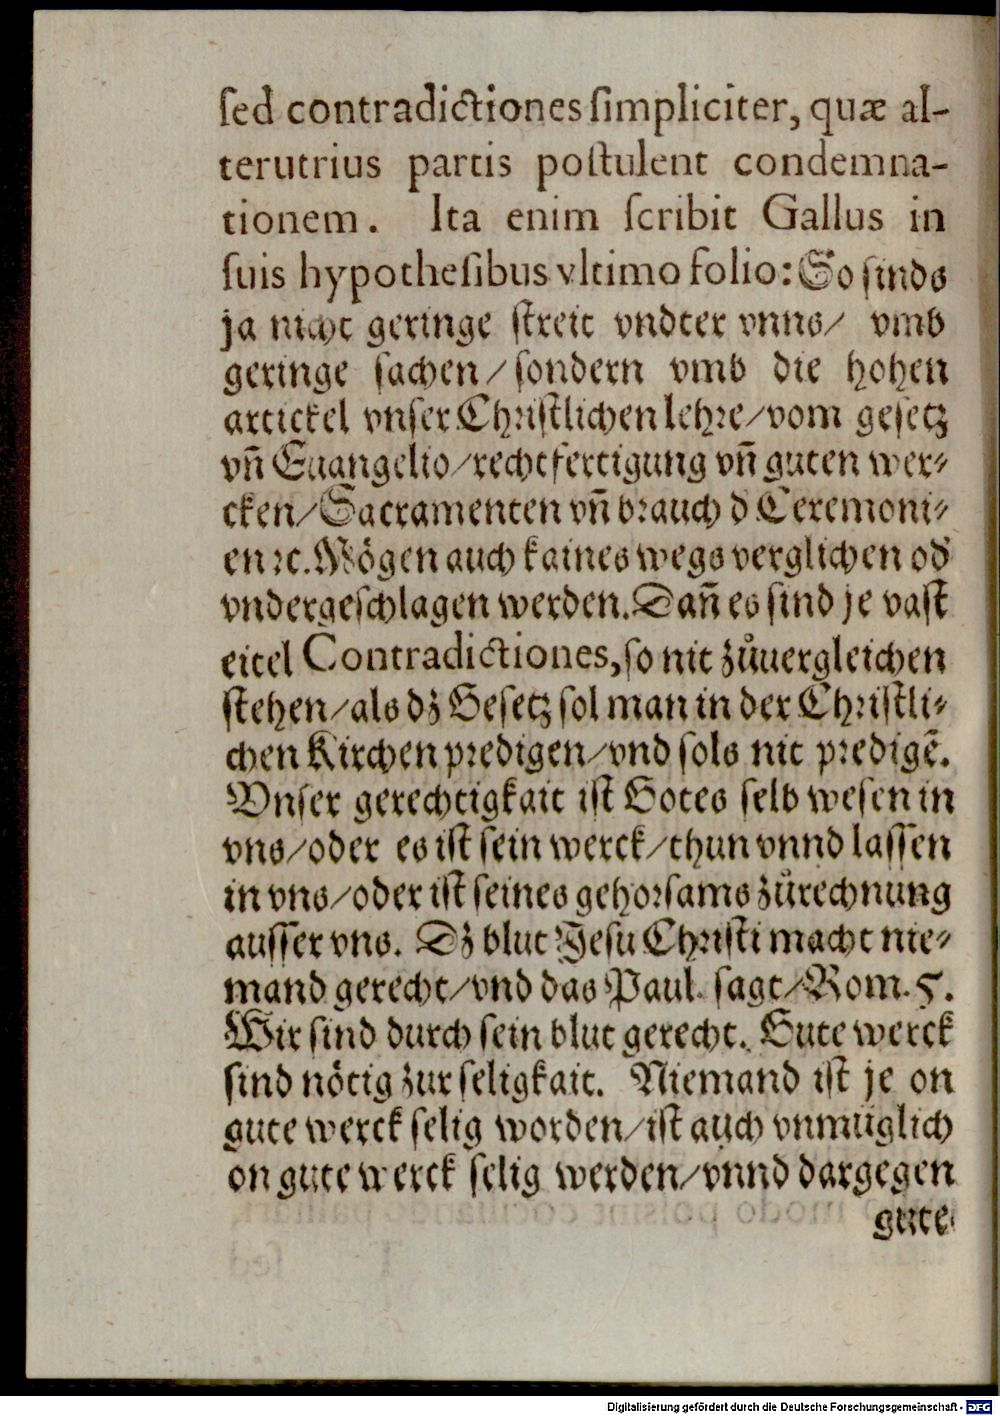 sed contradictiones simpliciter, quæ al-
terutrius partis postulent condemna-
tionem. Ita enim scribit Gallus in
suis hypothesibus vltimo folio: So sinds
ja nicht geringe streit vndter vnns/ vmb
geringe sachen/ sondern vmb die hohen
artickel vnser Christlichen lehre/ vom gesetz
vñ Euangelio/ rechtfertigung vñ guten wer-
cken/ Sacramenten vñ brauch d Ceremoni-
en ꝛc. Mögen auch kaines wegs verglichen od
vndergeschlagen werden. Dañ es sind je vast
eitel Contradictiones, so nit zůuergleichen
stehen/ als dz Gesetz sol man in der Christli-
chen Kirchen predigen/ vnd sols nit predigẽ.
Vnser gerechtigkait ist Gotes selb wesen in
vns/ oder es ist sein werck/ thun vnnd lassen
in vns/ oder ist seines gehorsams zůrechnung
ausser vns. Dz blut Jesu Christi macht nie-
mand gerecht/ vnd das Paul. sagt/ Rom. 5.
Wir sind durch sein blut gerecht. Gute werck
sind nötig zur seligkait. Niemand ist je on
gute werck selig worden/ ist auch vnmüglich
on gute werck selig werden/ vnnd dargegen
gute
Digitalisierung gefördert durch die Deutsche Forschungsgemeinschaft - DFG